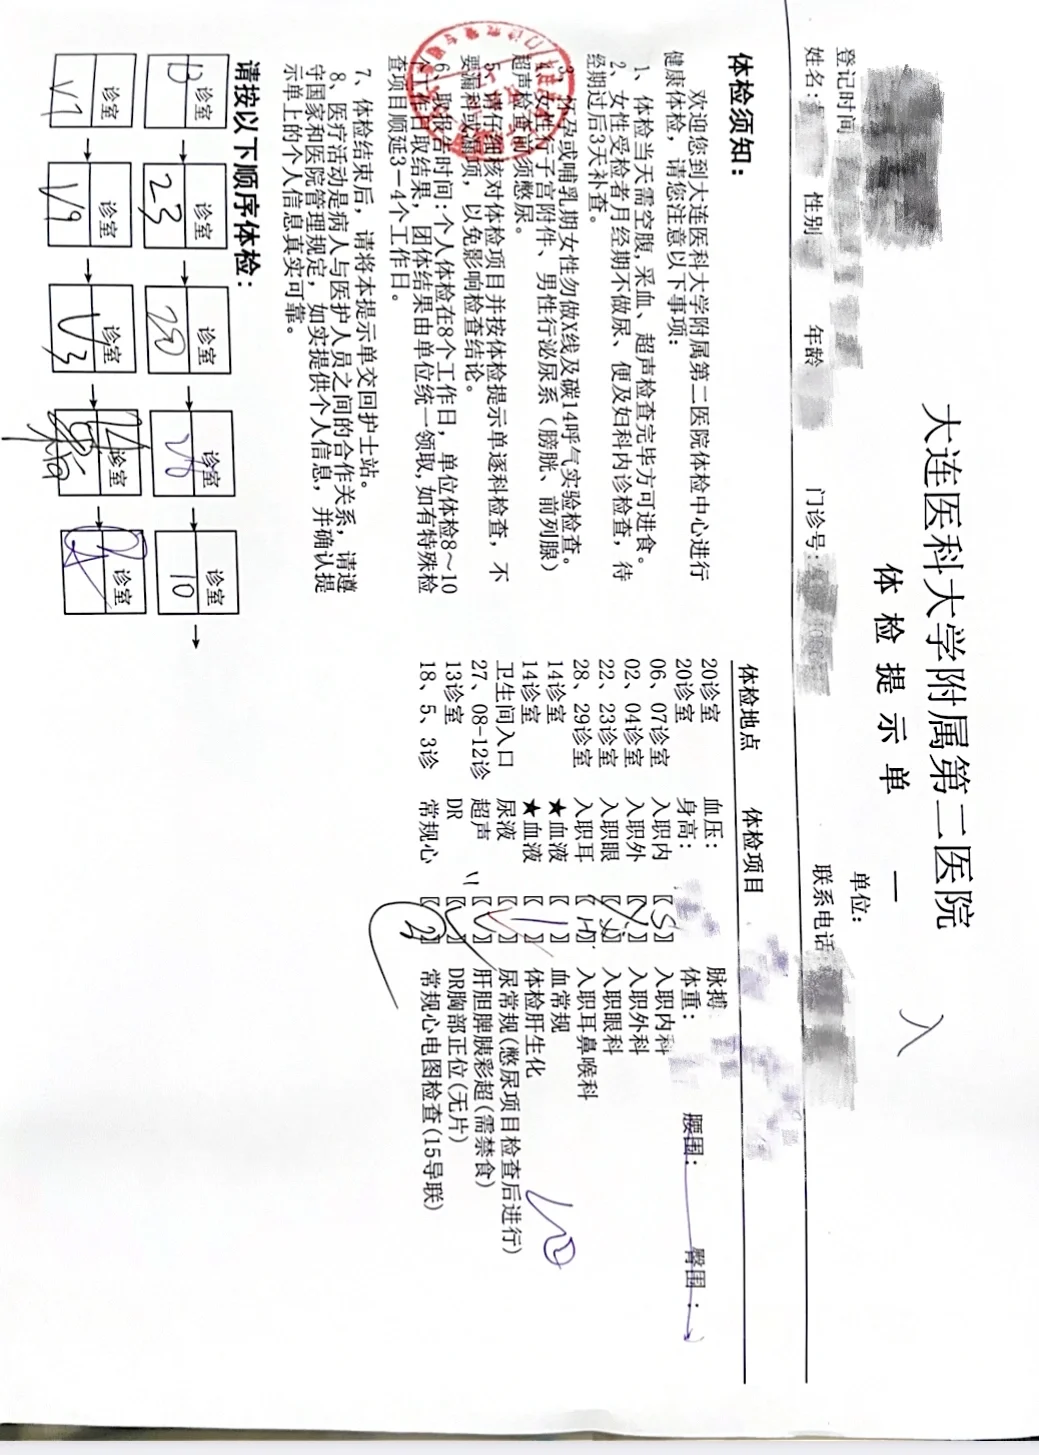 大连医科大学附属第二医院
体检提示单 一
登记时间
单位:
姓名: 性别 年龄 门诊号: 联系电话
入
体检须知:
欢迎您到大连医科大学附属第二医院体检中心进行
健康体检, 请您注意以下事项:
1、体检当天需空腹, 采血、超声检查完毕方可进食。
2、女性受检者月经期不做尿、便及妇科内诊检查, 待
经期过后3天补查。
3、怀孕或哺乳期女性勿做X线及碳14呼气实验检查。
4、女性行子宫附件、男性行泌尿系（膀胱、前列腺）
超声检查前须憋尿。
5、请仔细核对体检项目并按体检提示单逐科检查, 不
要漏科或漏项, 以免影响检查结论。
6、取报告时间: 个人体检在8个工作日, 单位体检8～10
个工作日取结果, 团体结果由单位统一领取, 如有特殊检
查项目顺延3-4个工作日。
7、体检结束后, 请将本提示单交回护士站。
8、医疗活动是病人与医护人员之间的合作关系, 请遵
守国家和医院管理规定, 如实提供个人信息, 并确认提
示单上的个人信息真实可靠。
请按以下顺序体检:
诊室 诊室 诊室 诊室 诊室
23 10
诊室 诊室 诊室 诊室 诊室
体检地点 体检项目
20诊室 血压: 脉搏
20诊室 身高: 体重: 腰围: 臀围:
06、07诊室 入职内【 】入职内科
02、04诊室 入职外【 】入职外科
22、23诊室 入职眼【 】入职眼科
28、29诊室 入职耳【 】入职耳鼻喉科
14诊室 ★血液【 】血常规
14诊室 ★血液【 】体检肝生化
卫生间入口 尿液【 】尿常规(憋尿项目检查后进行)
27、08-12诊 超声【 】肝胆脾胰彩超(需禁食)
13诊室 DR【 】DR胸部正位(无片)
18、5、3诊 常规心【 】常规心电图检查(15导联)